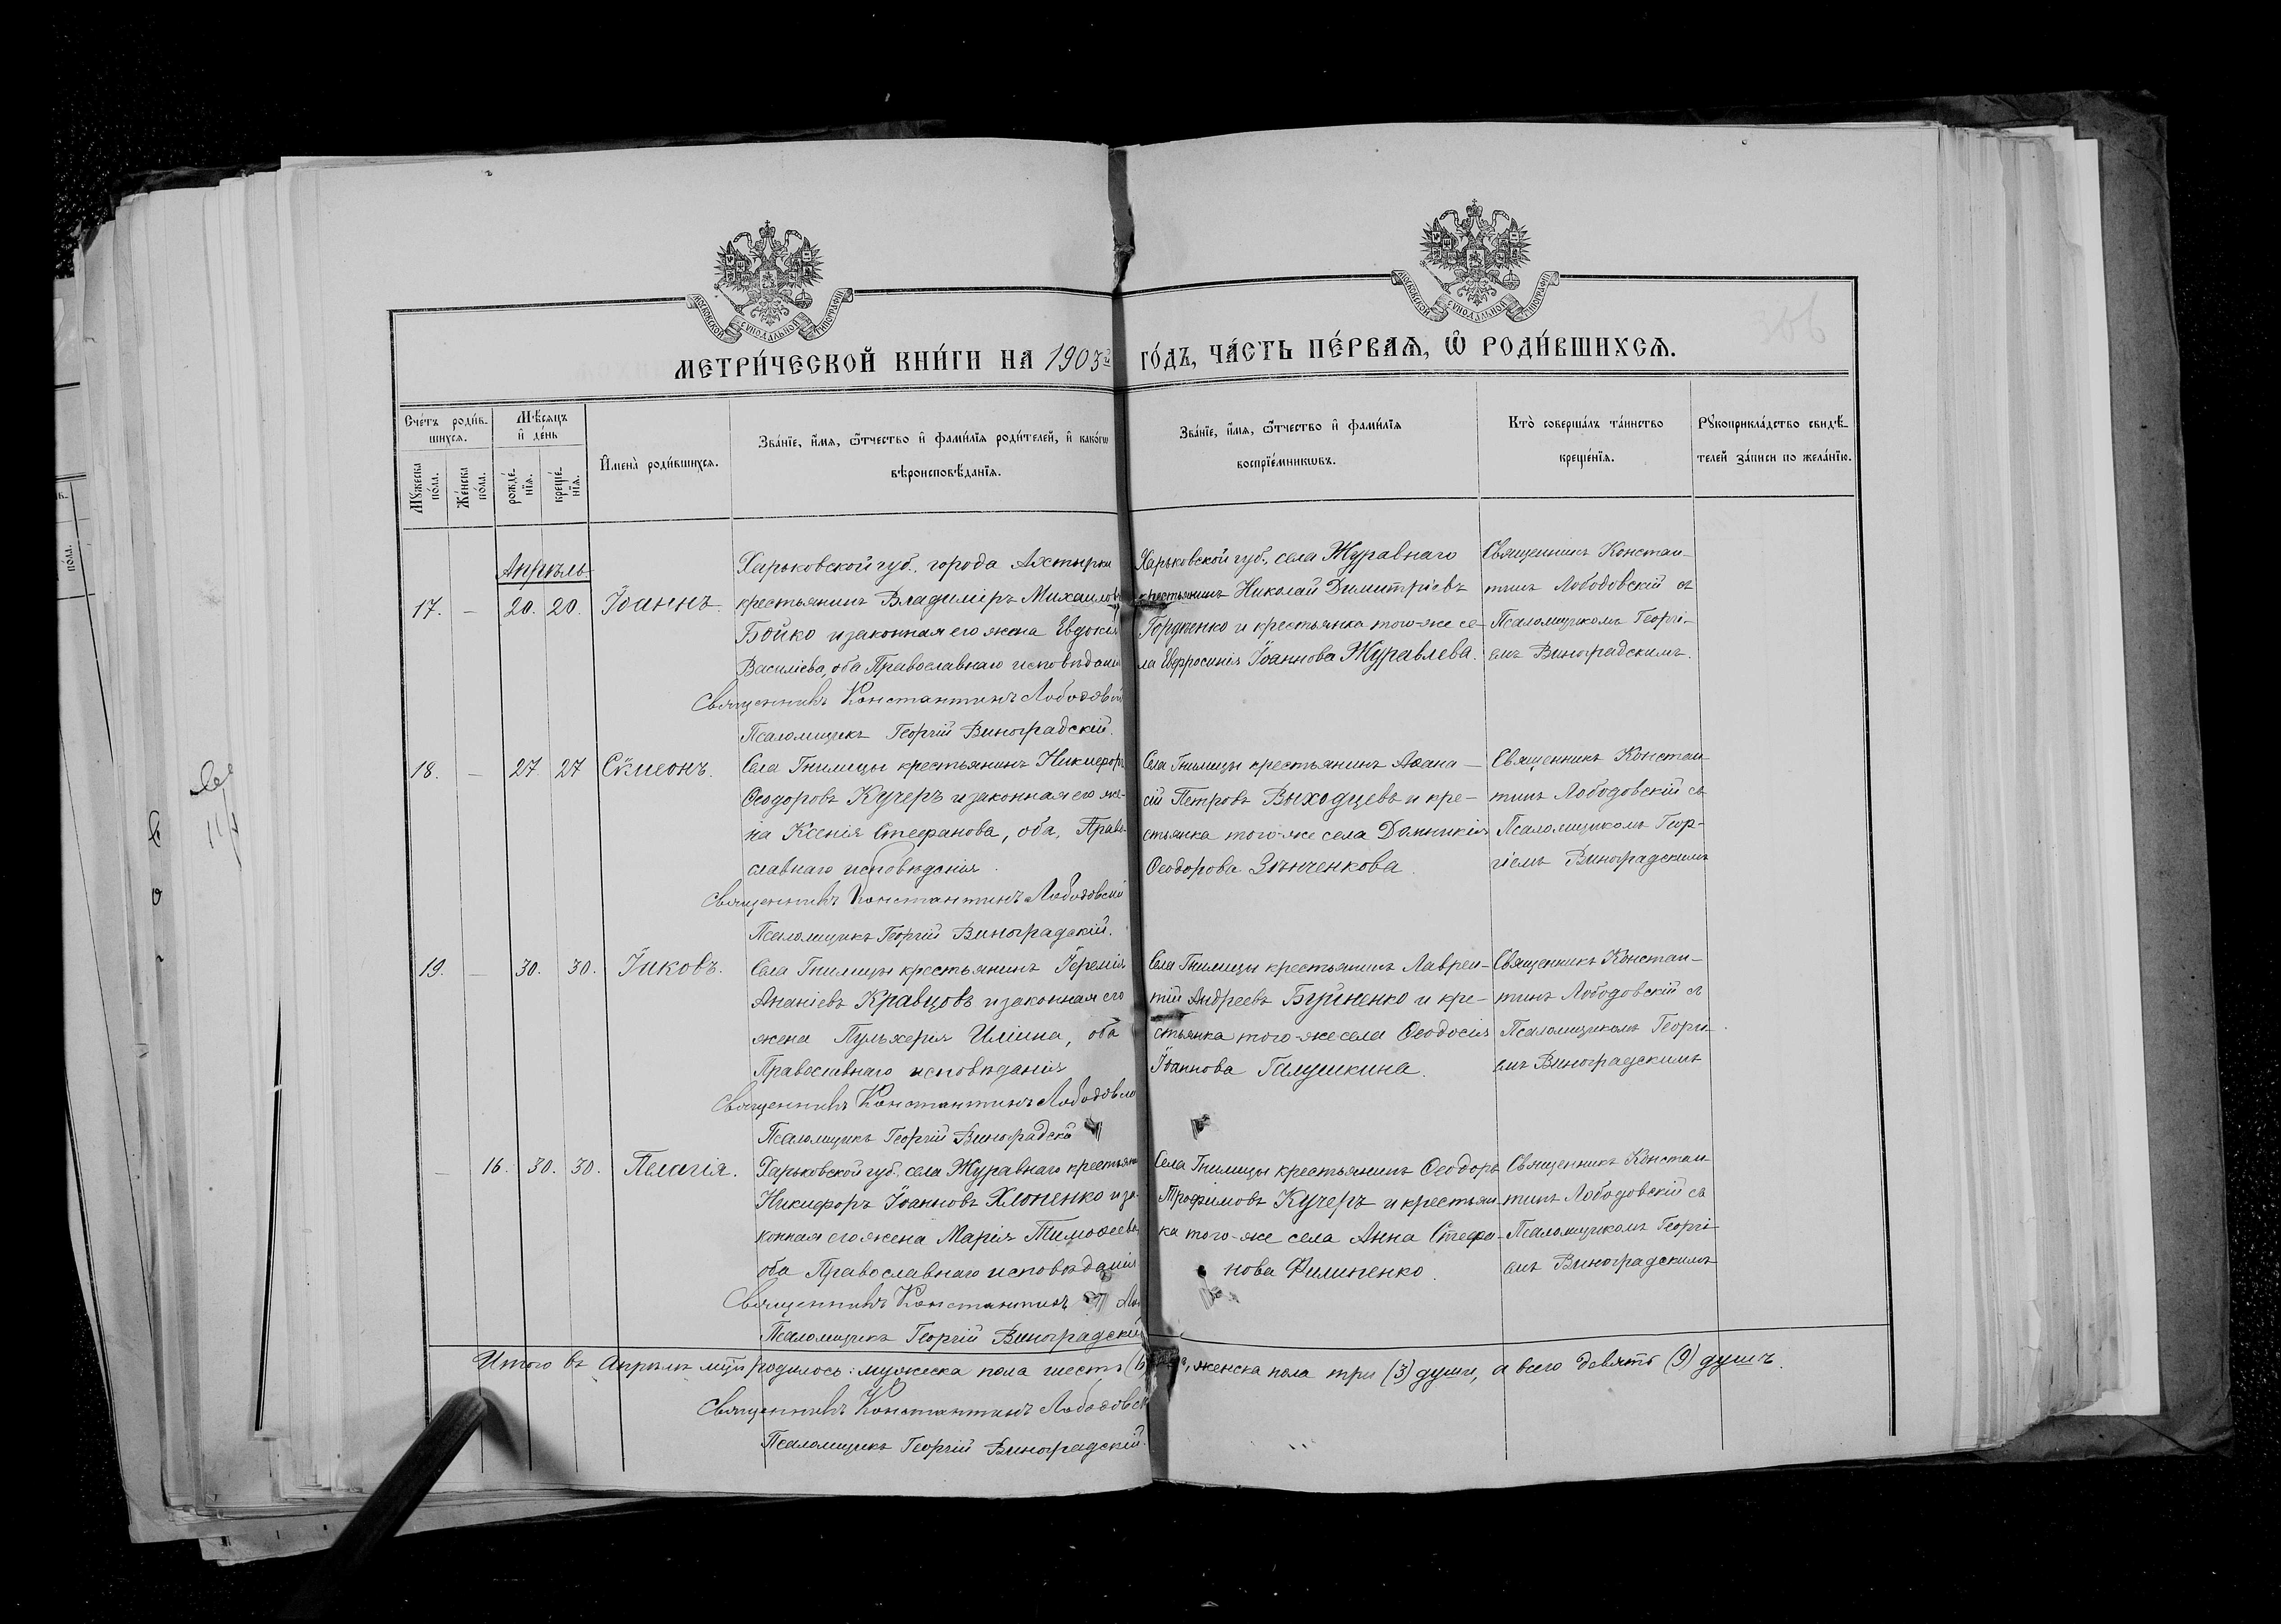 МОСКОВСКОЙ СѴНОДАЛЬНОЙ ТИПОГРАФІИ
МОСКОВСКОЙ СѴНОДАЛЬНОЙ ТИПОГРАФІИ
МЕТРИ́ЧЕСКОЙ КНИ́ГИ НА 1903й ГО́ДЪ, ЧА́СТЬ ПЕ́РВАѦ, Ѡ҆ РОДИ́ВШИХСѦ.
Сче́тъ роди́в-
шихсѧ.
Мꙋ́жеска по́ла.
Же́нска по́ла.
Мѣ́сѧцъ
и҆ де́нь
рожде́-
нїѧ.
креще́-
нїѧ.
И҆мена̀ роди́вшихсѧ.
Зва́нїе, и҆́мѧ, ѻ҆́тчество и҆ фами́лїѧ роди́телей, и҆ како́гѡ
вѣроисповѣ́данїѧ.
Зва́нїе, и҆́мѧ, ѻ҆́тчество и҆ фами́лїѧ
воспрїе́мникѡвъ.
Кто̀ соверша́лъ та́инство
креще́нїѧ.
Рꙋкоприкла́дство свидѣ́-
телей за́писи по жела́нїю.
Апрѣль
17. — 20. 20. Іоаннъ.
Харьковской губ. города Ахтырки
крестьянинъ Владиміръ Михаиловъ
Бойко и законная его жена Евдокія
Василіева, оба Православнаго исповѣданія
Священникъ Константинъ Лободовскій
Псаломщикъ Георгій Виноградскій.
Харьковской губ., села Журавнаго
крестьянинъ Николай Димитріевъ
и крестьянка того-же се-
ла Евфросинія Іоаннова Журавлева.
Священникъ Констан-
тинъ Лободовскій съ
Псаломщикомъ Георгі-
емъ Виноградскимъ.
18. — 27 27 Сѵмеонъ.
Села Гнилицы крестьянинъ Никифоръ
Ѳеодоровъ Кучеръ и законная его же-
на Ксенія Стефанова, оба, Право-
славнаго исповѣданія.
Священникъ Константинъ Лободовскій
Псаломщикъ Георгій Виноградскій.
Села Гнилицы крестьянинъ Аѳана-
сій Петровъ Выходцевъ и кре-
стьянка того-же села Домникія
Ѳеодорова Зѣнченкова.
Священникъ Констан-
тинъ Лободовскій съ
Псаломщикомъ Геор-
гіемъ Виноградскимъ
19. — 30. 30. Іаковъ.
Села Гнилицы крестьянинъ Іеремія
Ананіевъ Кравцовъ и законная его
жена Пульхерія Иліина, оба
Православнаго исповѣданія
Священникъ Константинъ Лободовскій
Псаломщикъ Георгій Виноградскій
Села Гнилицы крестьянинъ Лаврен-
тій Андреевъ и кре-
стьянка того-же села Ѳеодосія
Іоаннова Галушкина.
Священникъ Констан-
тинъ Лободовскій съ
Псаломщикомъ Георгі-
емъ Виноградскимъ
— 16. 30. 30. Пелагія.
Харьковской губ. села Журавнаго крестьянинъ
Никифоръ Іоанновъ Хлопенко и за-
конная его жена Марія Тимоѳеева,
оба Православнаго исповѣданія
Священникъ Константинъ
Псаломщикъ Георгій Виноградскій
Села Гнилицы крестьянинъ Ѳеодоръ
Трофимовъ Кучеръ и крестьян-
ка того-же села Анна Стефа-
нова Филипенко.
Священникъ Констан-
тинъ Лободовскій съ
Псаломщикомъ Георгі-
емъ Виноградскимъ
Итого въ Апрѣлѣ мцѣ родилось: мужеска пола шесть (6), женска пола три (3) души, а всего девять (9) душъ.
Священникъ Константинъ Лободовскій
Псаломщикъ Георгій Виноградскій.